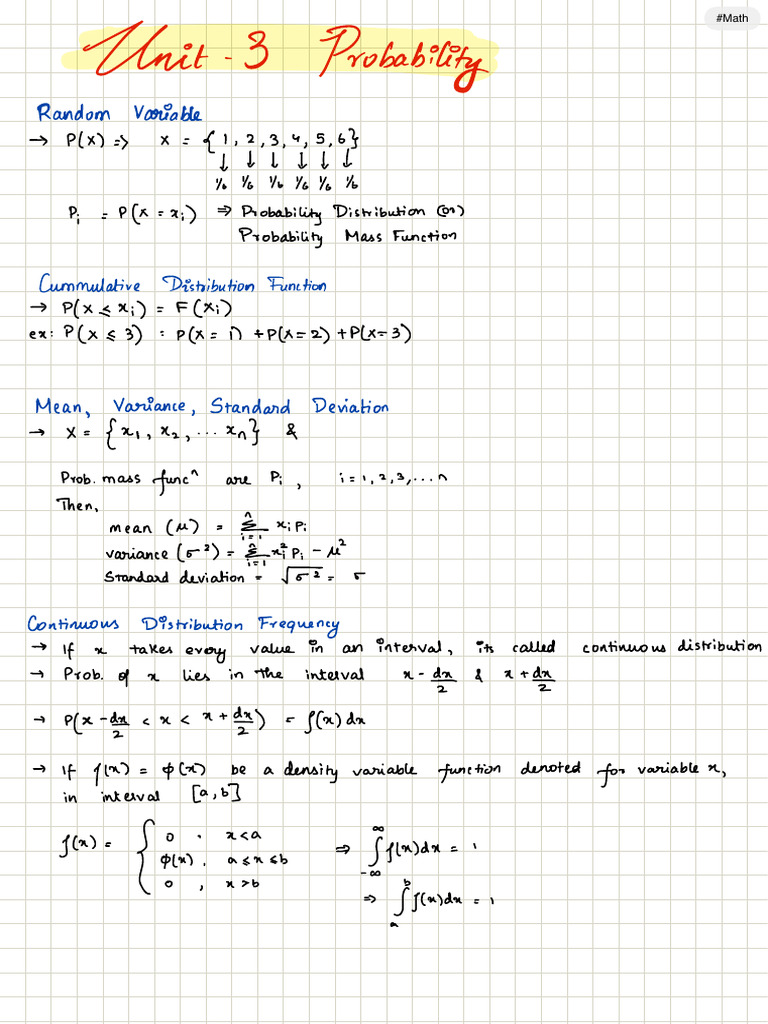 #Math
Unit - 3 Probability
Random Variable
→ P(X) => X = {1, 2, 3, 4, 5, 6}
↓ ↓ ↓ ↓ ↓ ↓
1/6 1/6 1/6 1/6 1/6 1/6
Pi = P(X = xi) ⇒ Probability Distribution (or)
Probability Mass Function
Cummulative Distribution Function
→ P(X ≤ xi) = F(xi)
ex: P(X ≤ 3) = P(X = 1) + P(X = 2) + P(X = 3)
Mean, Variance, Standard Deviation
→ X = {x1, x2, ... xn} &
Prob. mass funcⁿ are Pi, i = 1, 2, 3, ... n
Then,
mean (μ) = Σ_{i=1}^{n} xi Pi
variance (σ²) = Σ_{i=1}^{n} xi² Pi − μ²
Standard deviation = √σ² = σ
Continuous Distribution Frequency
→ If x takes every value in an interval, its called continuous distribution
→ Prob. of x lies in the interval x - dx/2 & x + dx/2
→ P(x - dx/2 < x < x + dx/2) = f(x) dx
→ If f(x) = φ(x) be a density variable function denoted for variable x,
in interval [a, b]
f(x) = { 0 , x < a ⇒ ∫_{-∞}^{∞} f(x) dx = 1
φ(x) , a ≤ x ≤ b
0 , x > b ⇒ ∫_{a}^{b} f(x) dx = 1